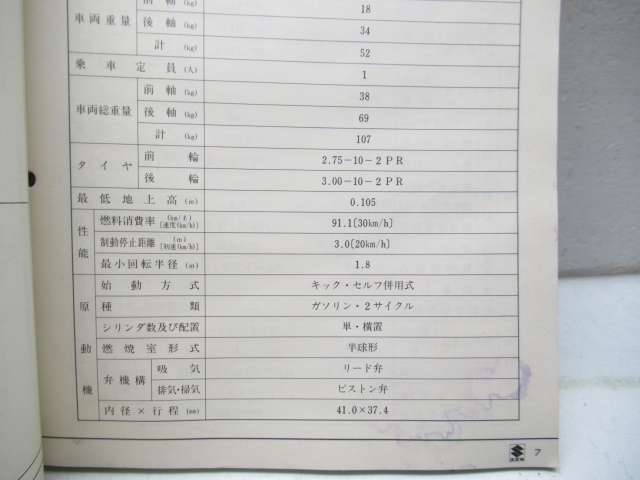 車両重量 前軸(kg) 18
後軸(kg) 34
計(kg) 52
乗車定員(人) 1
車両総重量 前軸(kg) 38
後軸(kg) 69
計(kg) 107
タイヤ 前輪 2.75-10-2PR
後輪 3.00-10-2PR
最低地上高(m) 0.105
性能 燃料消費率 (km/ℓ) [速度(km/h)] 91.1[30km/h]
制動停止距離 (m) [初速(km/h)] 3.0[20km/h]
最小回転半径(m) 1.8
原動機 始動方式 キック・セルフ併用式
種類 ガソリン・2サイクル
シリンダ数及び配置 単・横置
燃焼室形式 半球形
弁機構 吸気 リード弁
排気・掃気 ピストン弁
内径×行程(mm) 41.0×37.4
7